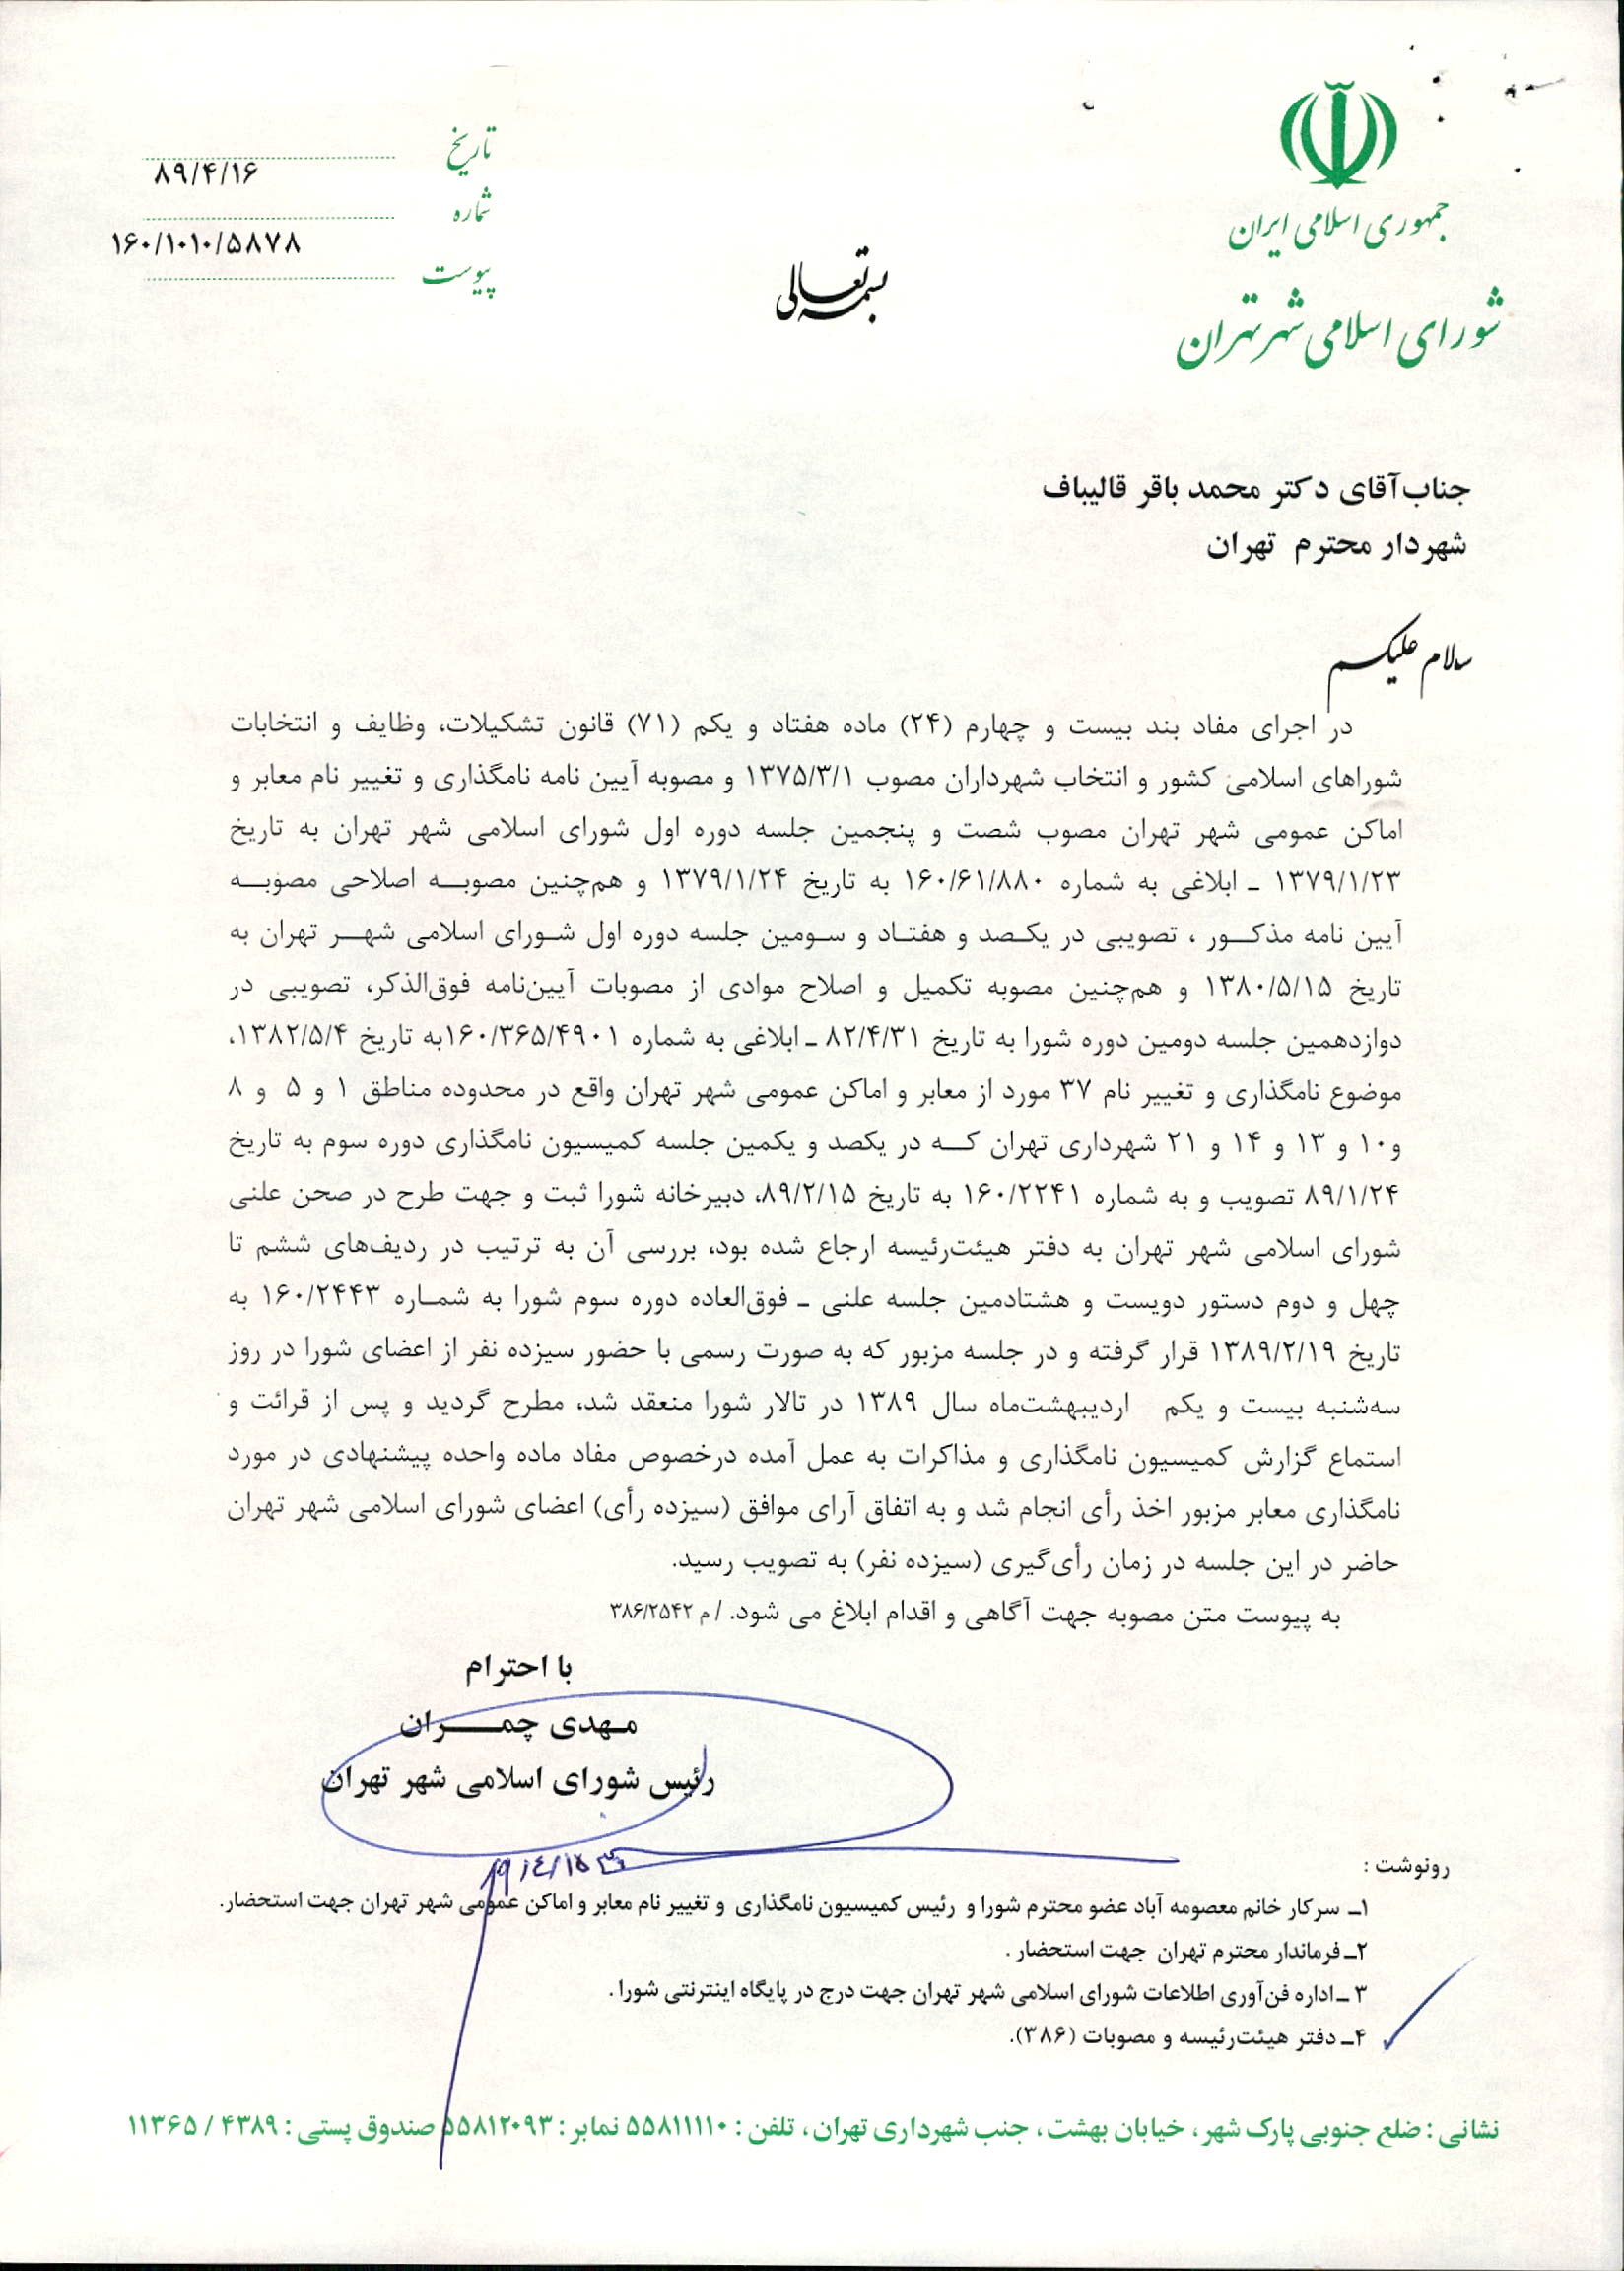 جمهوری اسلامی ایران
شورای اسلامی شهر تهران
تاریخ
۸۹/۴/۱۶
شماره
۱۶۰/۱۰۱۰/۵۸۷۸
پیوست
بسمه تعالی
جناب‌آقای دکتر محمد باقر قالیباف
شهردار محترم تهران
سلام علیکم
در اجرای مفاد بند بیست و چهارم (۲۴) ماده هفتاد و یکم (۷۱) قانون تشکیلات، وظایف و انتخابات
شوراهای اسلامی کشور و انتخاب شهرداران مصوب ۱۳۷۵/۳/۱ و مصوبه آیین نامه نامگذاری و تغییر نام معابر و
اماکن عمومی شهر تهران مصوب شصت و پنجمین جلسه دوره اول شورای اسلامی شهر تهران به تاریخ
۱۳۷۹/۱/۲۳ ـ ابلاغی به شماره ۱۶۰/۶۱/۸۸۰ به تاریخ ۱۳۷۹/۱/۲۴ و هم‌چنین مصوبـــه اصلاحی مصوبـــه
آیین نامه مذکـــور ، تصویبی در یکـصد و هفتـاد و سـومین جلسه دوره اول شـورای اسلامی شهـــر تهران به
تاریخ ۱۳۸۰/۵/۱۵ و هم‌چنین مصوبه تکمیل و اصلاح موادی از مصوبات آیین‌نامه فوق‌الذکر، تصویبی در
دوازدهمین جلسه دومین دوره شورا به تاریخ ۸۲/۴/۳۱ ـ ابلاغی به شماره ۱۶۰/۳۶۵/۴۹۰۱به تاریخ ۱۳۸۲/۵/۴،
موضوع نامگذاری و تغییر نام ۳۷ مورد از معابر و اماکن عمومی شهر تهران واقع در محدوده مناطق ۱ و ۵ و ۸
و۱۰ و ۱۳ و ۱۴ و ۲۱ شهرداری تهران کـــه در یکصد و یکمین جلسه کمیسیون نامگذاری دوره سوم به تاریخ
۸۹/۱/۲۴ تصویب و به شماره ۱۶۰/۲۲۴۱ به تاریخ ۸۹/۲/۱۵، دبیرخانه شورا ثبت و جهت طرح در صحن علنی
شورای اسلامی شهر تهران به دفتر هیئت‌رئیسه ارجاع شده بود، بررسی آن به ترتیب در ردیف‌های ششم تا
چهل و دوم دستور دویست و هشتادمین جلسه علنی ـ فوق‌العاده دوره سوم شورا به شمـاره ۱۶۰/۲۴۴۳ به
تاریخ ۱۳۸۹/۲/۱۹ قرار گرفته و در جلسه مزبور که به صورت رسمی با حضور سیزده نفر از اعضای شورا در روز
سه‌شنبه بیست و یکم اردیبهشت‌ماه سال ۱۳۸۹ در تالار شورا منعقد شد، مطرح گردید و پس از قرائت و
استماع گزارش کمیسیون نامگذاری و مذاکرات به عمل آمده درخصوص مفاد ماده واحده پیشنهادی در مورد
نامگذاری معابر مزبور اخذ رأی انجام شد و به اتفاق آرای موافق (سیزده رأی) اعضای شورای اسلامی شهر تهران
حاضر در این جلسه در زمان رأی‌گیری (سیزده نفر) به تصویب رسید.
به پیوست متن مصوبه جهت آگاهی و اقدام ابلاغ می شود. / م ۳۸۶/۲۵۴۲
با احترام
مـهدی چمـــــران
رئیس شورای اسلامی شهر تهران
رونوشت :
۱ـ سرکار خانم معصومه آباد عضو محترم شورا و رئیس کمیسیون نامگذاری و تغییر نام معابر و اماکن عمومی شهر تهران جهت استحضار.
۲ـ فرماندار محترم تهران جهت استحضار .
۳ ـ اداره فن‌آوری اطلاعات شورای اسلامی شهر تهران جهت درج در پایگاه اینترنتی شورا.
۴ـ دفتر هیئت‌رئیسه و مصوبات (۳۸۶).
نشانی : ضلع جنوبی پارک شهر، خیابان بهشت، جنب شهرداری تهران، تلفن : ۵۵۸۱۱۱۱۰ نمابر : ۵۵۸۱۲۰۹۳ صندوق پستی : ۴۳۸۹ / ۱۱۳۶۵